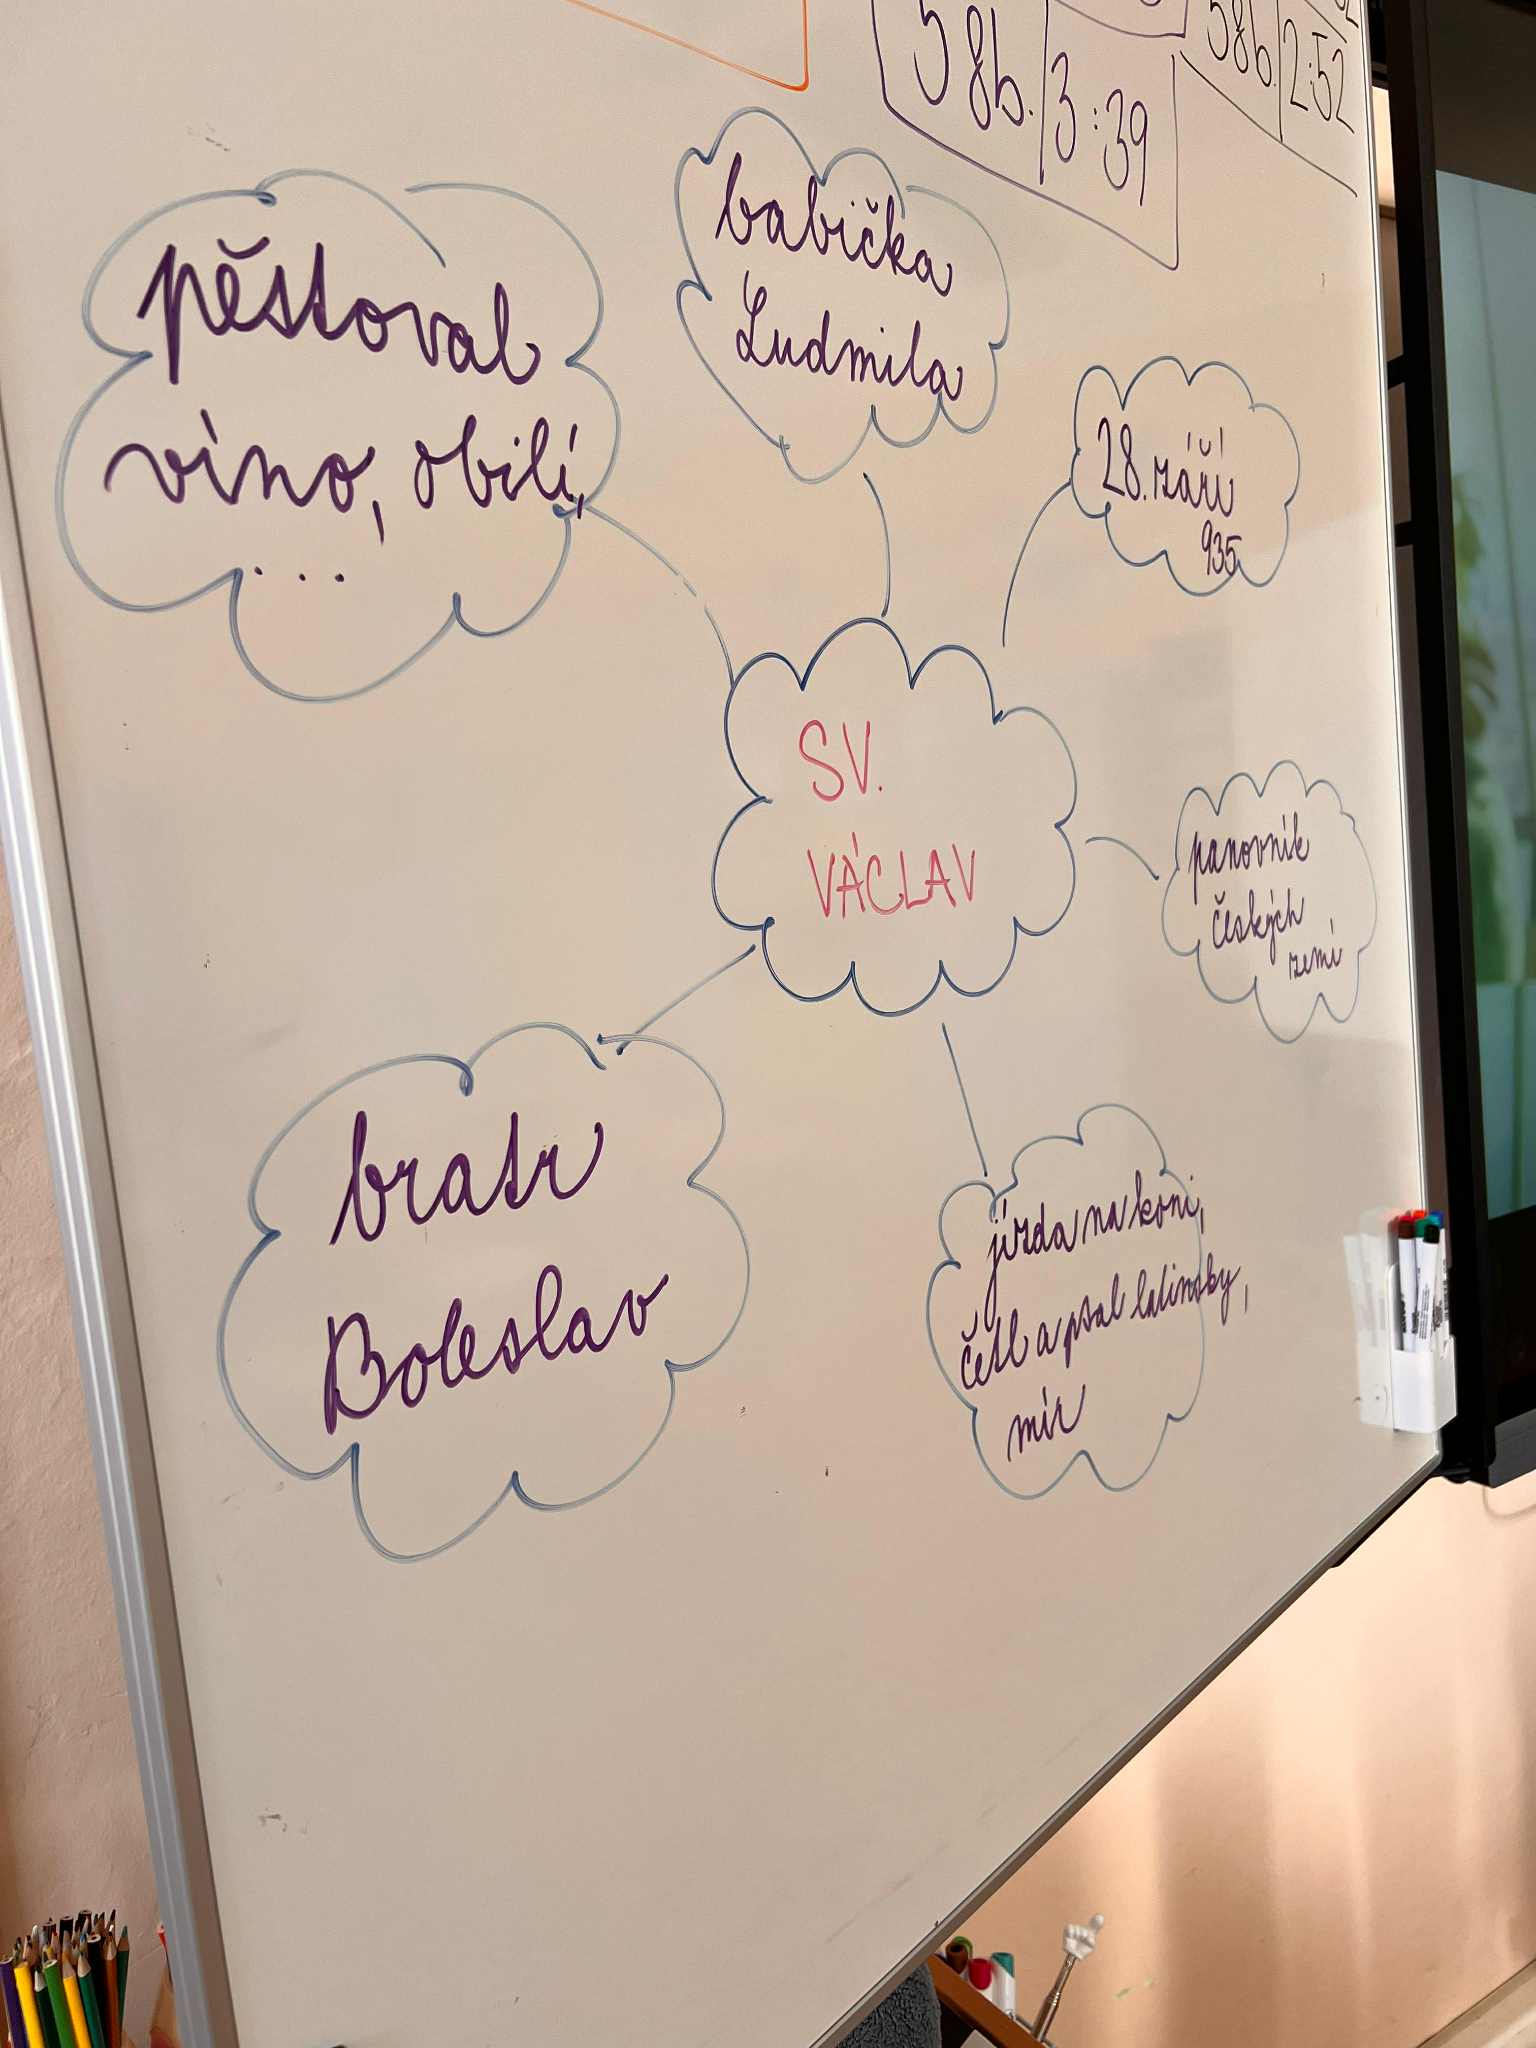 58b. 3:39
58b. 2:52
babička
Ludmila
pěstoval
víno, obilí,
...
28. září
935
SV.
VÁCLAV
panovník
českých
zemí
bratr
Boleslav
jízda na koni,
četl a psal latinsky,
mír